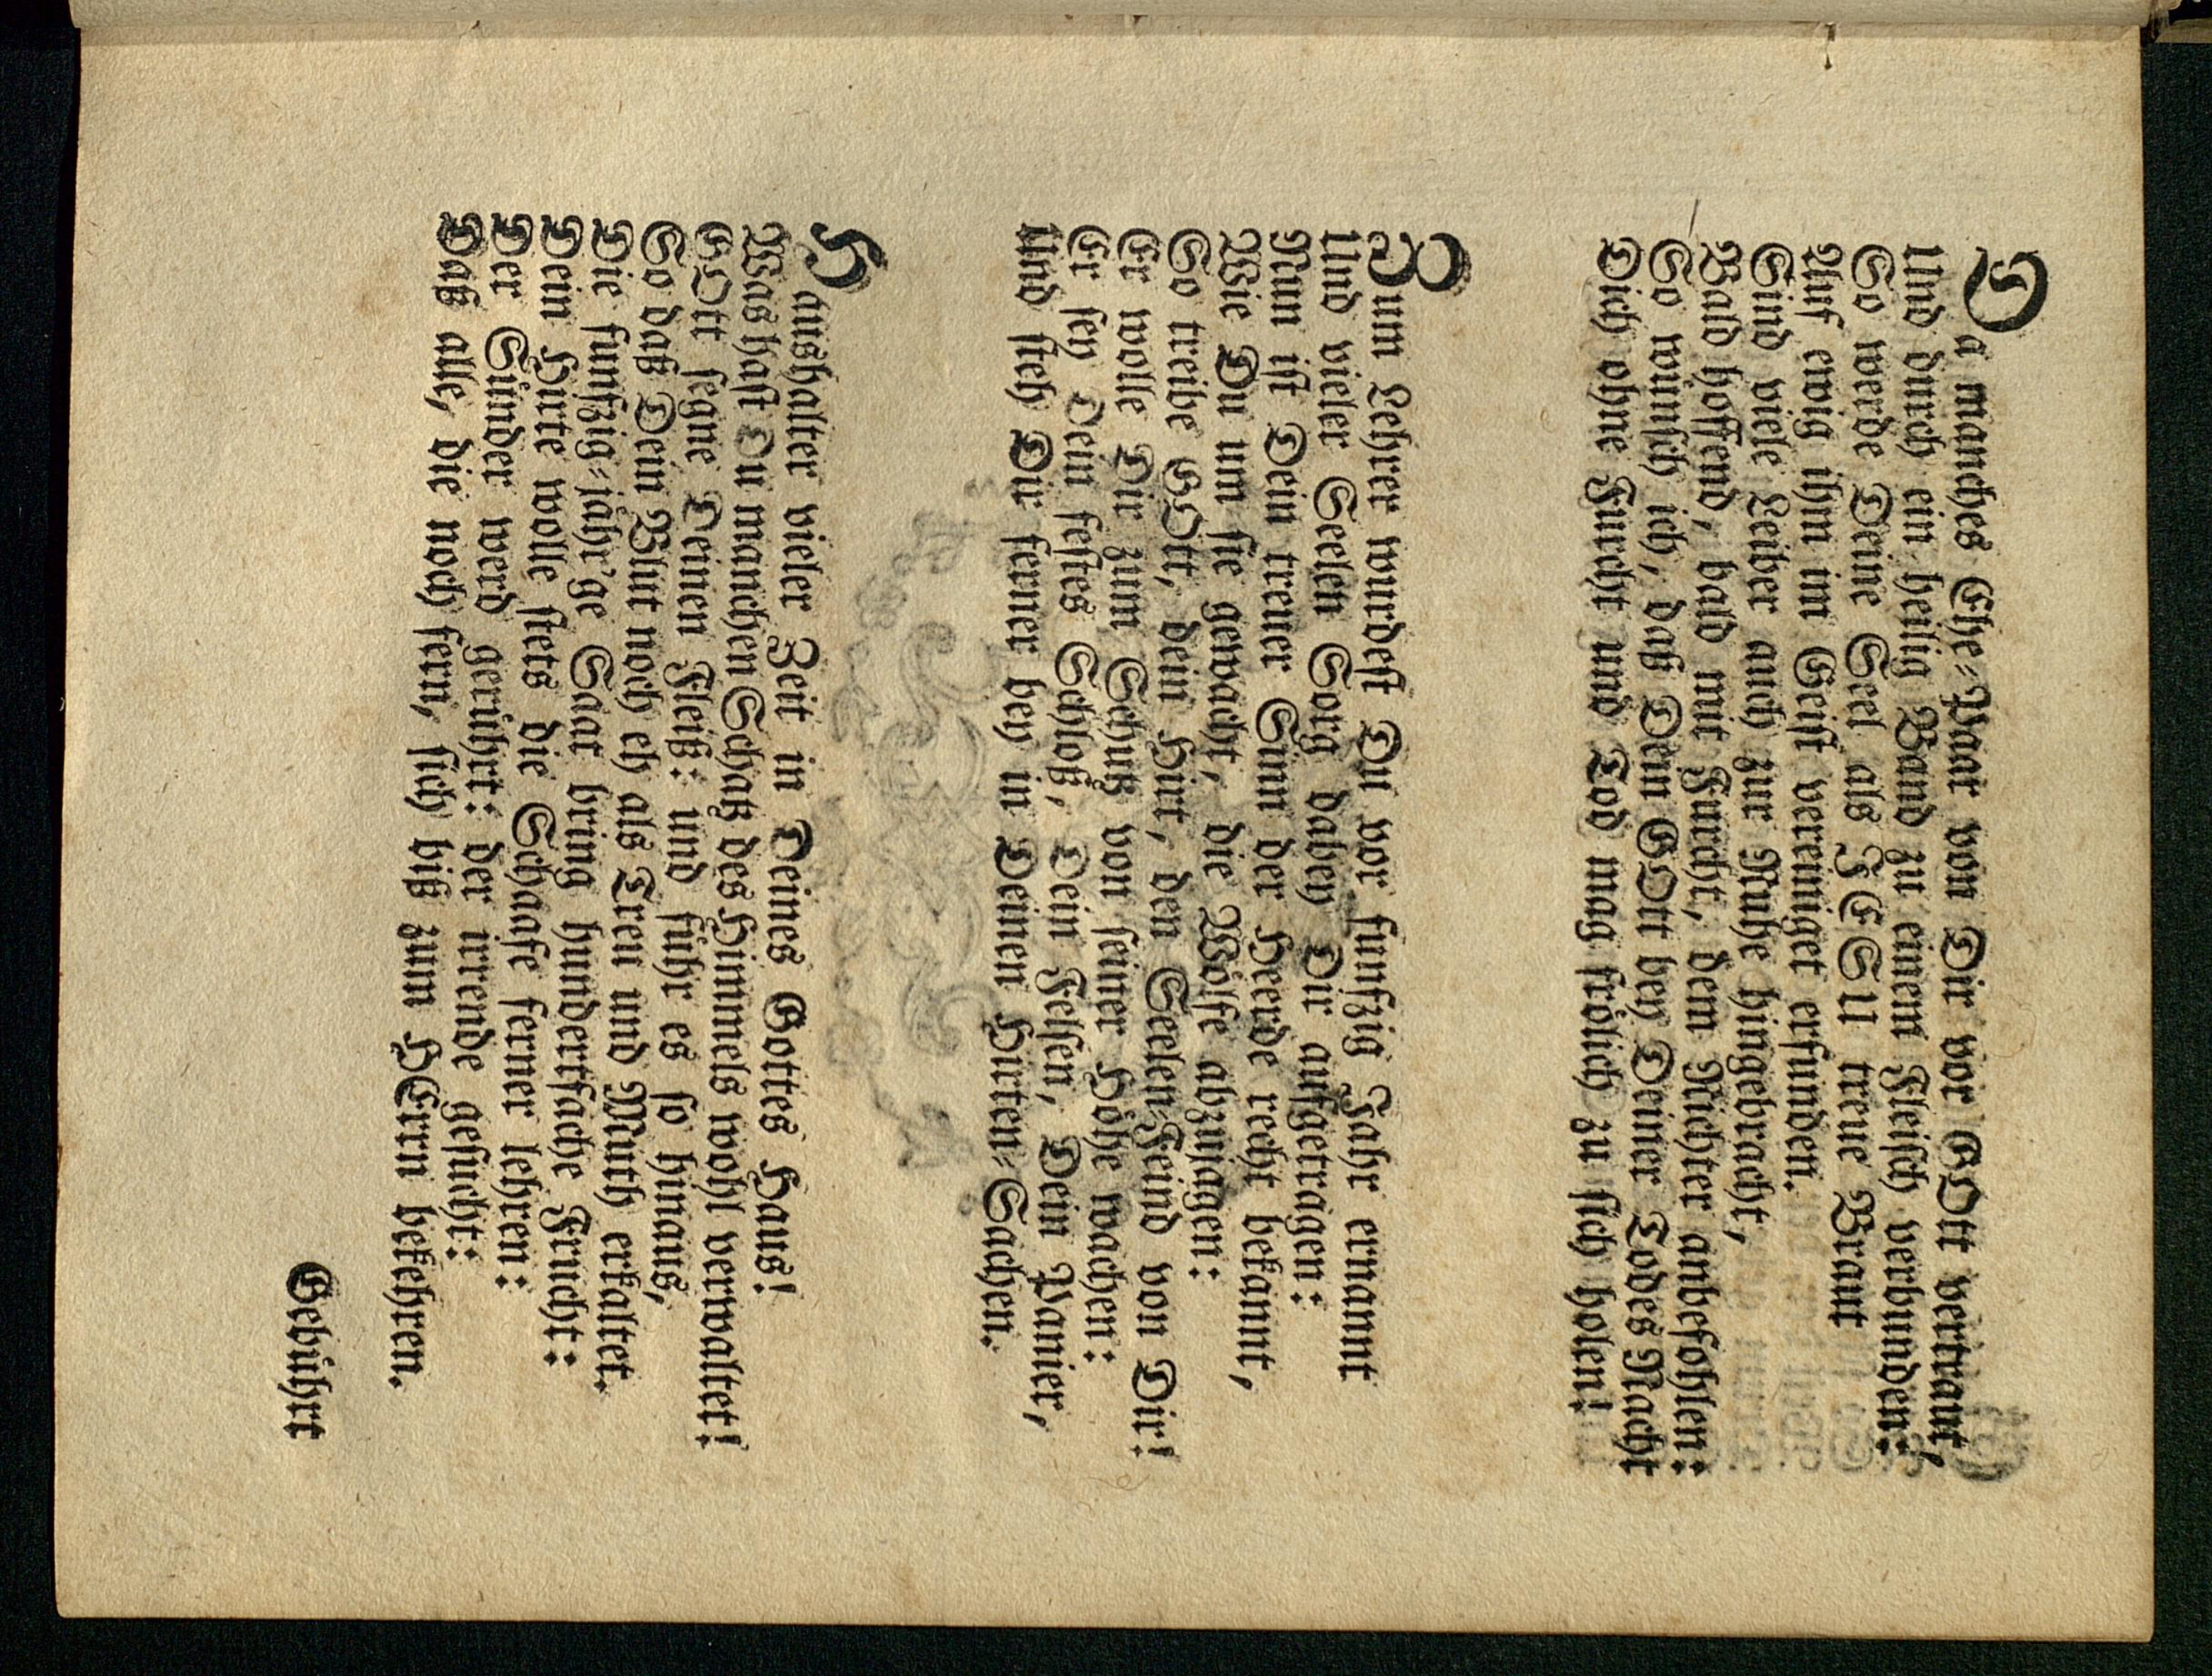 Da manches Ehe-Paar von Dir vor GOtt vertraut,
Und durch ein heilig Band zu einem Fleisch verbunden:
So werde Deine Seel als JESU treue Braut
Auf ewig ihm im Geist vereiniget erfunden.
Sind viele Leiber auch zur Ruhe hingebracht,
Bald hoffend, bald mit Furcht, dem Richter anbefohlen:
So wünsch ich, daß Dein GOtt bey Deiner Todes Nacht
Dich ohne Furcht und Tod mag frölich zu sich holen!
Zum Lehrer wurdest Du vor funfzig Jahr ernannt
Und vieler Seelen Sorg dabey Dir aufgetragen:
Nun ist Dein treuer Sinn der Heerde recht bekannt,
Wie Du um sie gewacht, die Wölfe abzujagen:
So treibe GOtt, dein Hirt, den Seelen-Feind von Dir!
Er wolle Dir zum Schutz von seiner Höhe wachen:
Er sey Dein festes Schloß, Dein Felsen, Dein Panier,
Und steh Dir ferner bey in Deinen Hirten-Sachen.
Haushalter vieler Zeit in Deines Gottes Haus!
Was hast Du manchen Schatz des Himmels wohl verwaltet!
GOtt segne Deinen Fleiß: und führ es so hinaus,
So daß Dein Blut noch eh als Treu und Muth erkaltet.
Die funfzig-jähr'ge Saat bring hundertfache Frucht:
Dein Hirte wolle stets die Schaafe ferner lehren:
Der Sünder werd gerührt: der irrende gesucht:
Daß alle, die noch fern, sich biß zum HErrn bekehren.
Gebührt